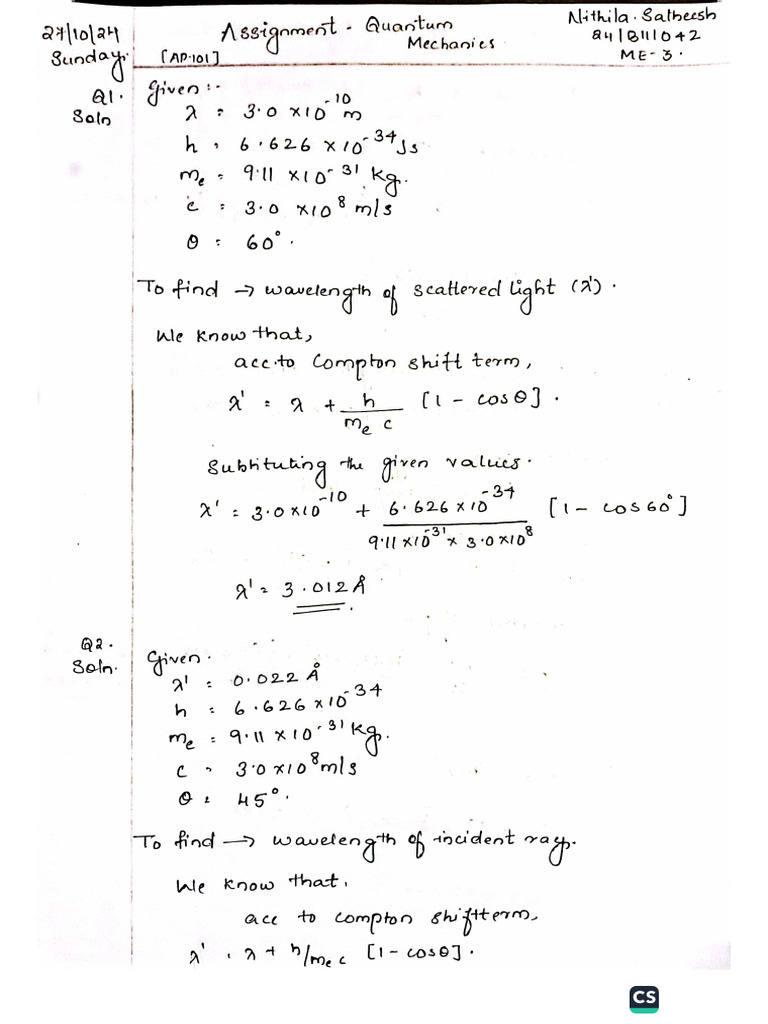 27/10/24
Sunday.
Assignment - Quantum Mechanics
[AP-101]
Nithila. Satheesh
24/B11/042
ME-3.
Q1.
Soln
Given:-
λ = 3.0 ×10^-10 m
h = 6.626 ×10^-34 Js
m_e = 9.11 ×10^-31 kg.
c = 3.0 ×10^8 m/s
θ = 60°.
To find → wavelength of scattered light (λ').
We know that,
acc. to Compton shift term,
λ' = λ + h/(m_e c) [1 - cosθ].
Subtituting the given values.
λ' = 3.0×10^-10 + (6.626 ×10^-34)/(9.11 ×10^-31 × 3.0×10^8) [1 - cos60°]
λ' = 3.012 Å.
Q2.
Soln.
Given.
λ' = 0.022 Å
h = 6.626 ×10^-34
m_e = 9.11 ×10^-31 kg.
c = 3.0 ×10^8 m/s
θ = 45°.
To find → wavelength of incident ray.
We know that,
acc to compton shift term,
λ' = λ + h/m_e c [1 - cosθ].
CS